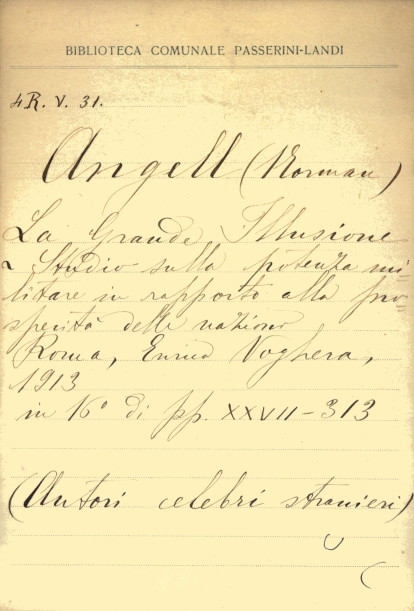 BIBLIOTECA COMUNALE PASSERINI-LANDI
4R. V. 31.
Angell (Norman)
La Grande Illusione
Studio sulla potenza mi-
litare in rapporto alla pro-
sperità delle nazioni
Roma, Enrico Voghera,
1913
in 16° di pp. XXVII-313
(Autori celebri stranieri)